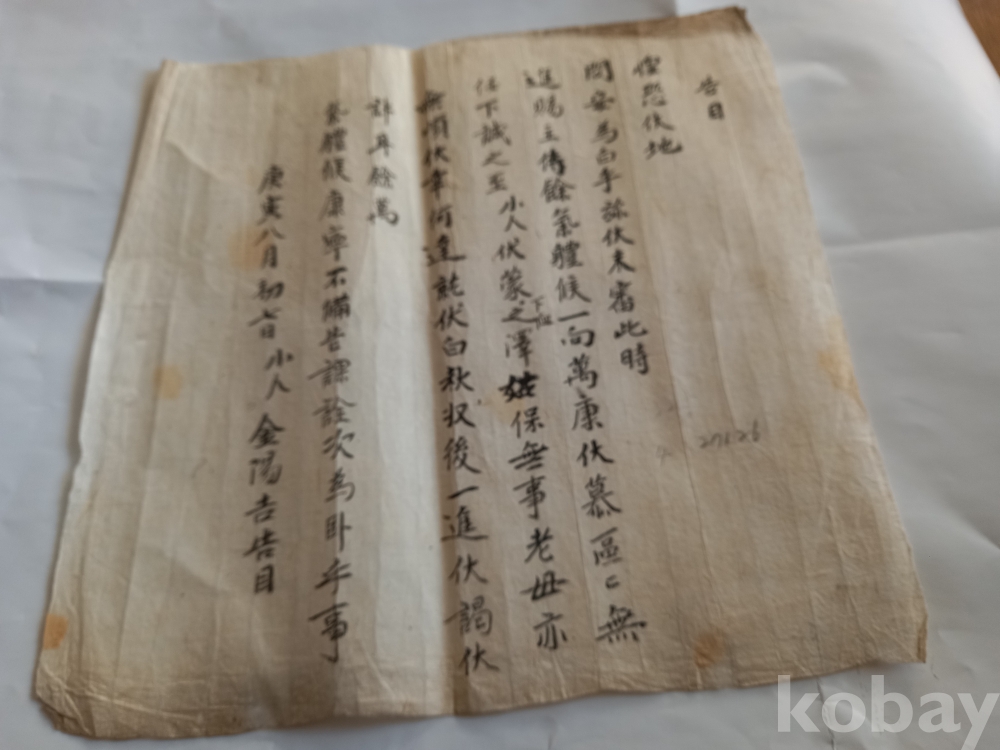 告目
惶恐伏地
問安爲白乎 伏未審此時
進賜主 餘氣體候一向萬康伏慕區〻無
任下誠之至 小人伏蒙下 之澤 保無事老母亦
無 伏幸何達 伏白秋收後一進伏謁伏
計耳餘萬
氣體候康寧不備告課 次爲卧乎事
庚寅八月初 日 小人 金陽吉告目
27626
kobay